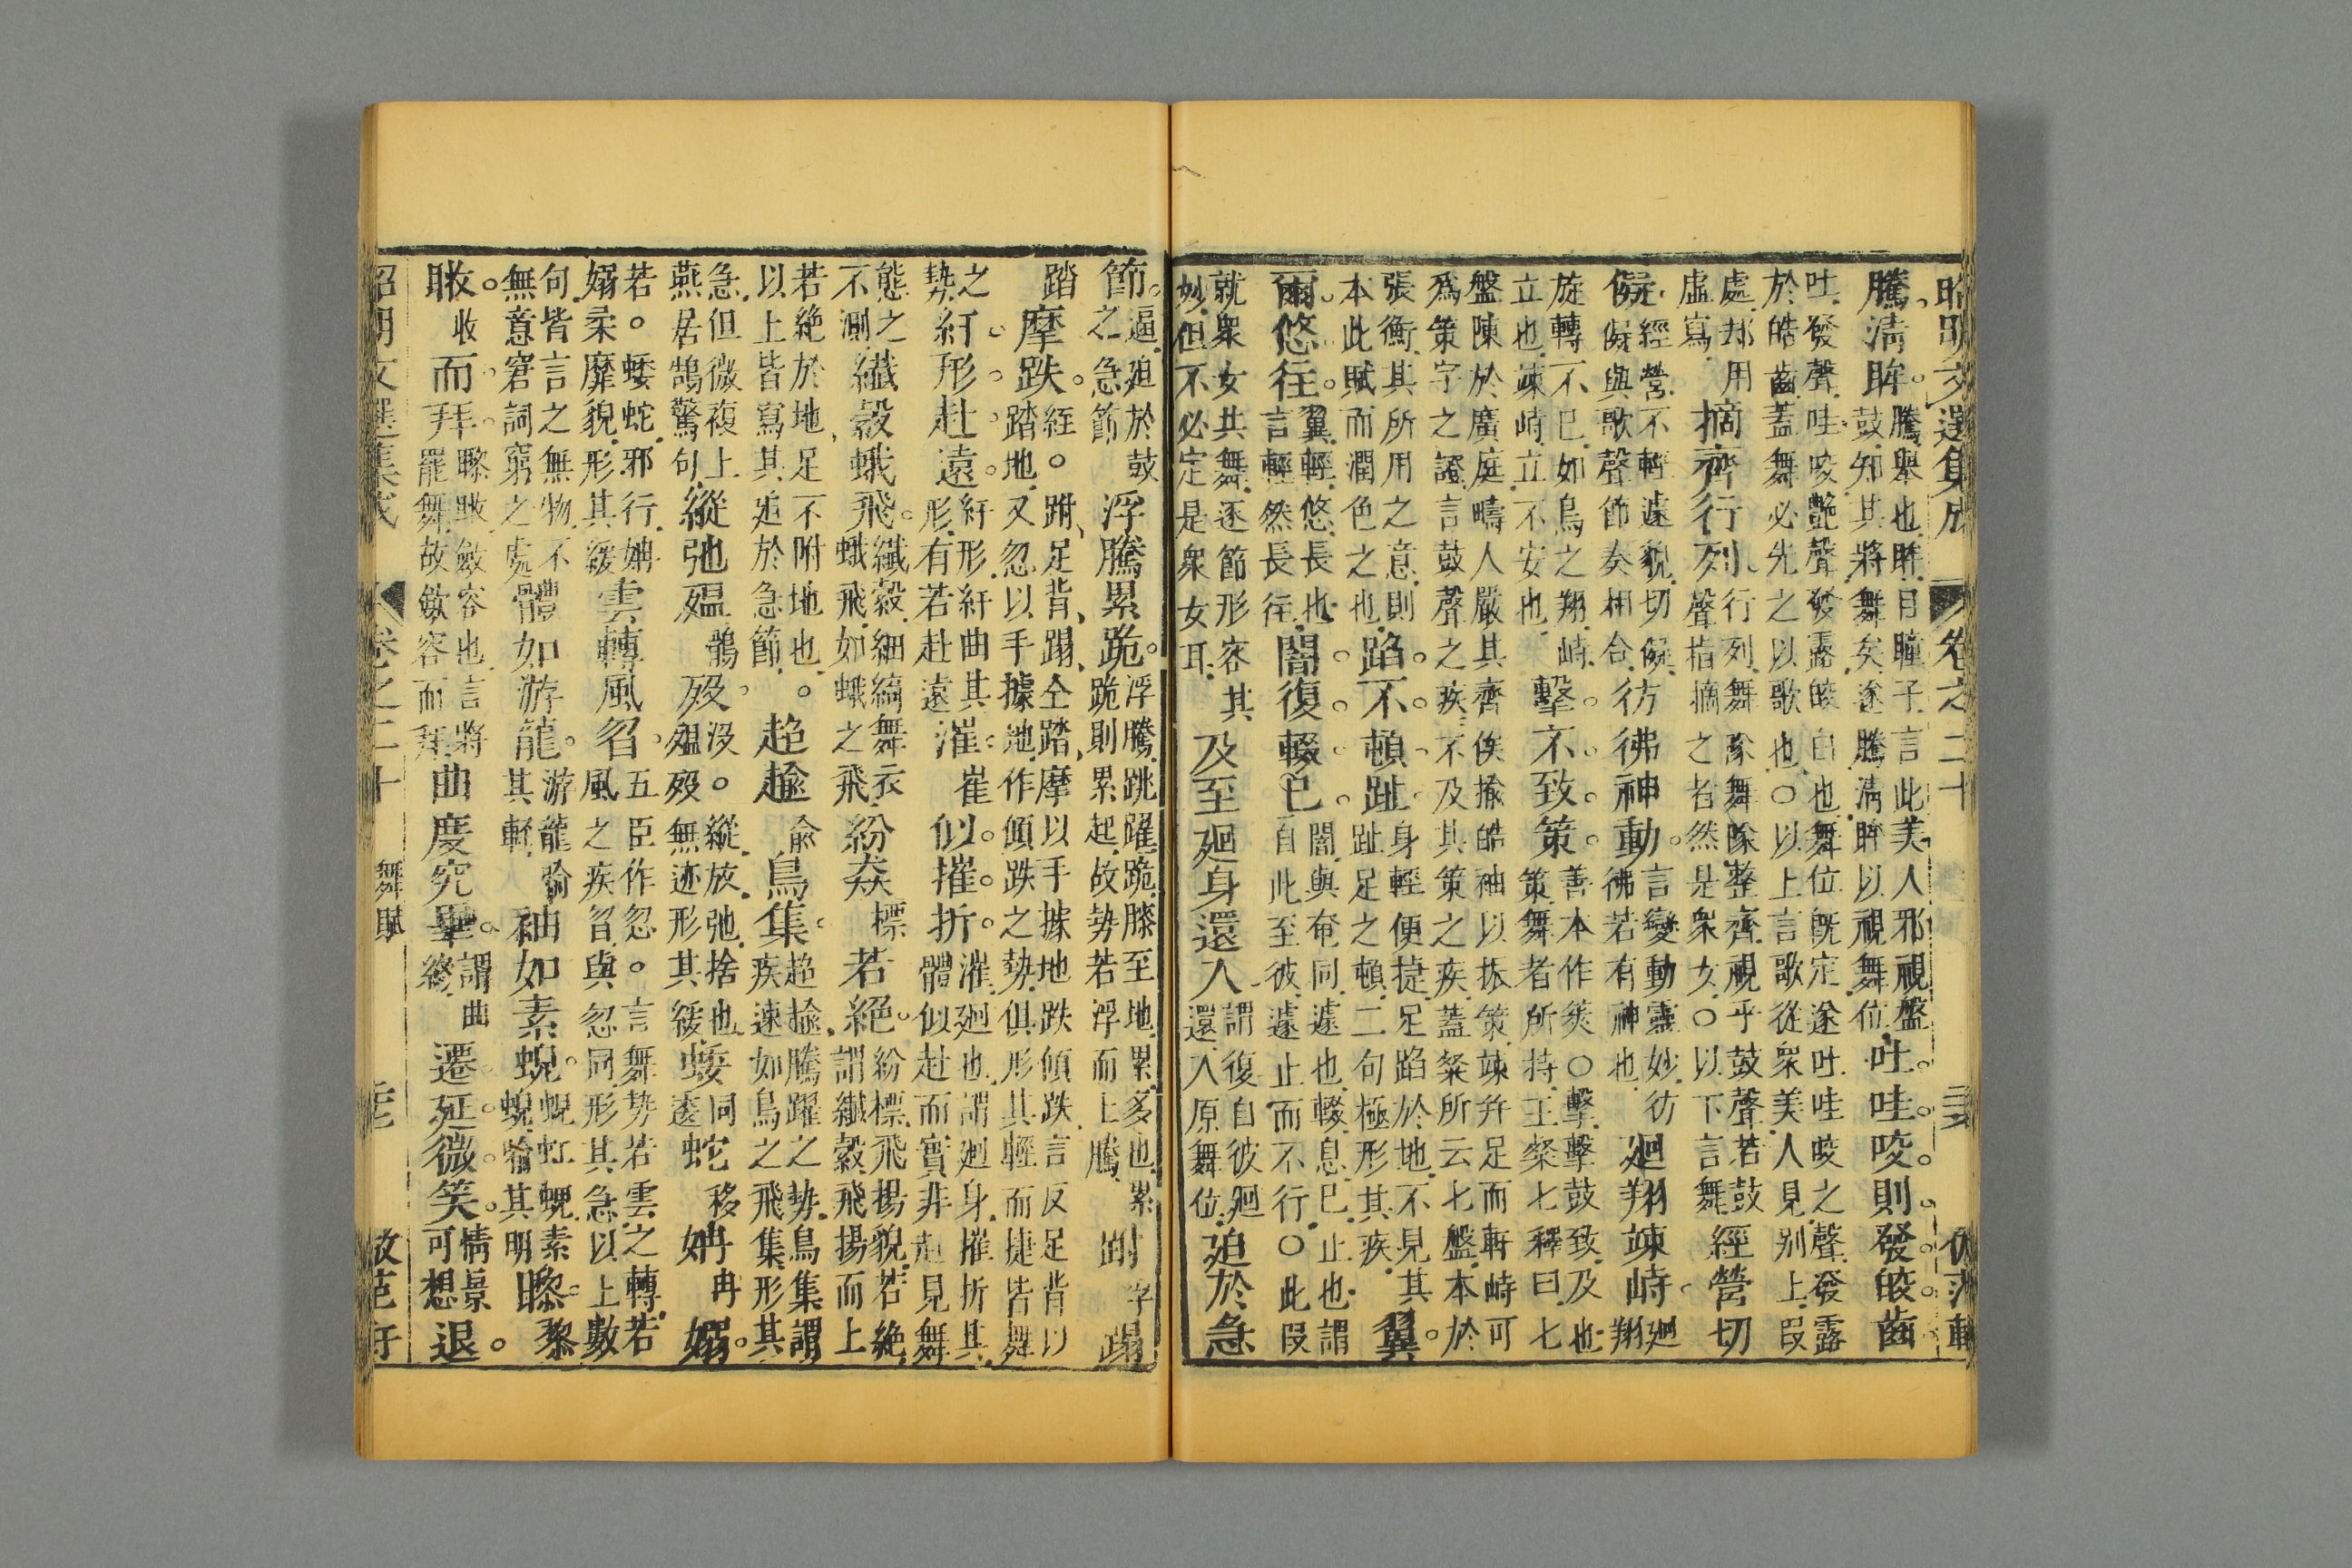 昭明文選集成 卷之二十
騰清眸。騰舉也眸目瞳子言此美人邪視盤鼓知其將舞矣遂騰清眸以視舞位吐哇咬則發皓齒
吐發聲哇咬艷聲發露皓白也舞位既定遂吐哇咬之聲發露於皓齒蓋舞必先之以歌也○以上言歌從衆美人見别上段
處却用虛寫摘齊行列行列舞隊舞隊整齊視乎鼓聲若鼓聲指摘之者然是衆女○以下言舞經營切
儗經營不輕遽貌切儗儗與歌聲節奏相合彷彿神動。言變動靈妙彷彿若有神也廻翔竦峙。廻翔
旋轉不已如鳥之翔峙立也竦峙立不安也擊不致策。善本作筴○擊擊鼓致及也策舞者所持王粲七釋曰七
盤陳於廣庭疇人嚴其齊俟揄皓袖以振策竦并足而軒峙可爲策字之證言鼓聲之疾不及其策之疾蓋粲所云七盤本於
張衡其所用之意則本此賦而潤色之也蹈不頓趾身輕便捷足蹈於地不見其趾足之頓二句極形其疾翼
爾悠往。翼輕悠長也言輕然長往闇復輟已闇與奄同遽也輟息已止也謂自此至彼遽止而不行○此段
就衆女其舞逐節形容其妙但不必定是衆女耳及至廻身還入謂復自彼廻還入原舞位迫於急
節。逼廹於鼓之急節浮騰累跪。浮騰跳躍跪膝至地累多也累跪則累起故勢若浮而上騰跗字蹋
踏摩跌。絰。跗足背蹋仝踏摩以手據地跌傾跌言反足背以踏地又忽以手據地作傾跌之勢俱形其輕而捷皆舞
之勢紆形赴遠。紆形紆曲其形有若赴遠漼崔似摧折。漼廻也謂廻身摧折其體似赴而實非赴見舞
態之不測纖縠蛾飛。纖縠細縞舞衣蛾飛如蛾之飛紛猋標若絕。紛標飛揚貌若絶謂纖縠飛揚而上
若絶於地足不附地也。以上皆寫其廹於急節俞鳥集。騰躍之勢鳥集謂疾速如鳥之飛集形其
急但微複上燕居鵠驚句縱弛殟鶻歿没。縱放弛捨也殟歿無迹形其緩蜲同逶蛇移姌冉嫋。
若。蜲蛇邪行姌嫋柔靡貌形其緩雲轉風曶。五臣作忽。言舞勢若雲之轉若風之疾曶與忽同形其急以上數
句皆言之無物不無意窘詞窮之處體如游龍。游龍喻其輕袖如素蜺。蜺虹蜺素蜺喻其明黎
收。收而拜。斂容也言將罷舞故斂容而拜曲度究畢。謂曲終遷延微笑。情景可想退。
昭明文選集成 卷之二十 舞賦